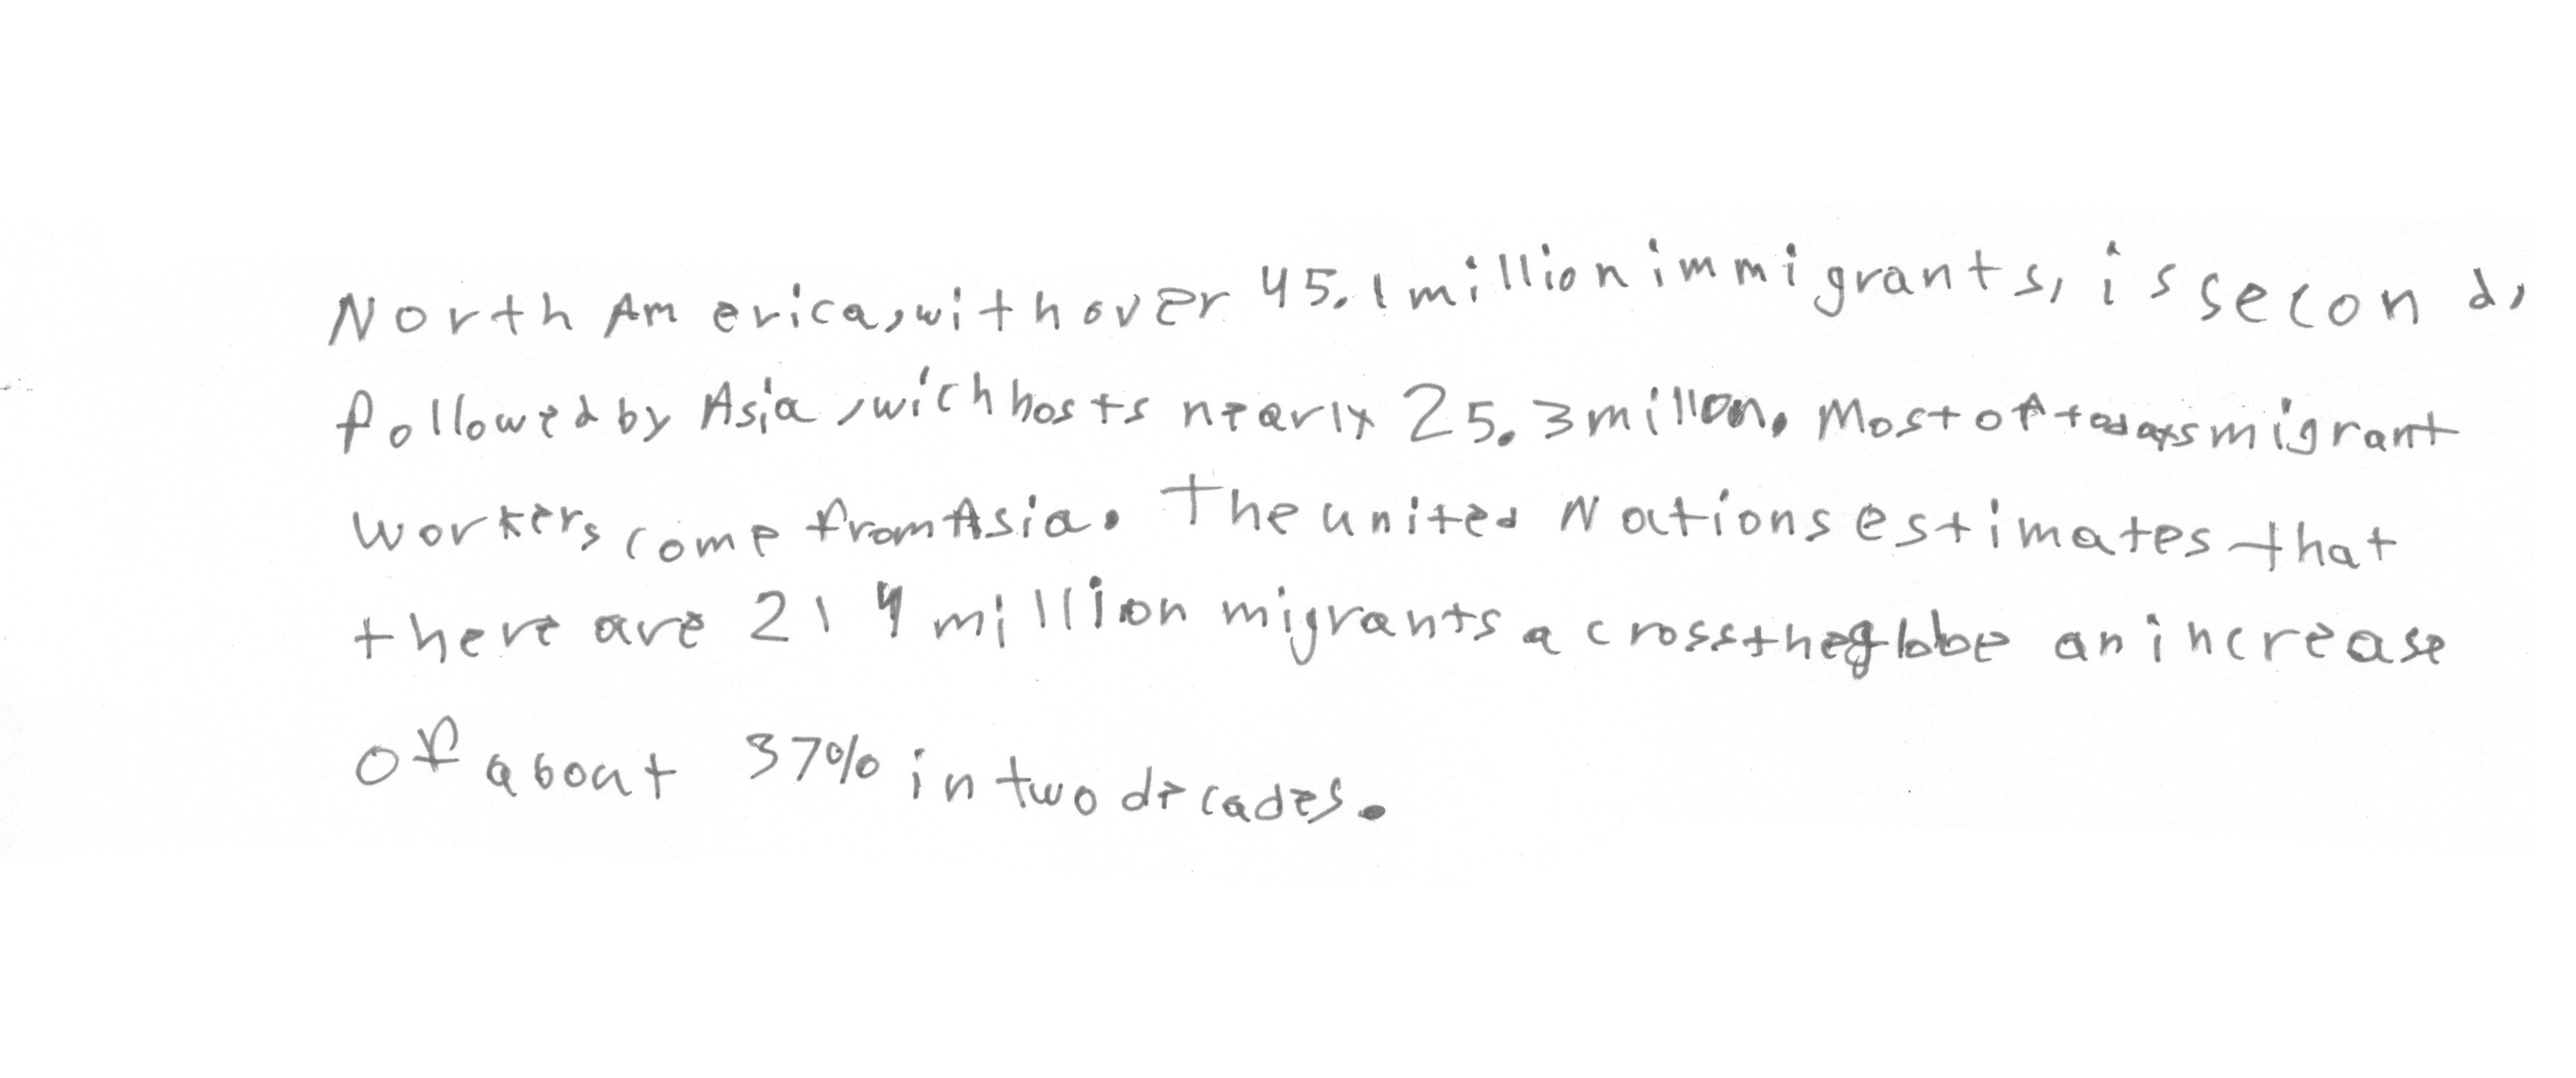 North America, with over 45.1 million immigrants, is second,
followed by Asia, wich hosts nearly 25.3 millon. Most of todays migrant
workers come from Asia. The united Nations estimates that
there are 214 million migrants across the globe an increase
of about 37% in two decades.